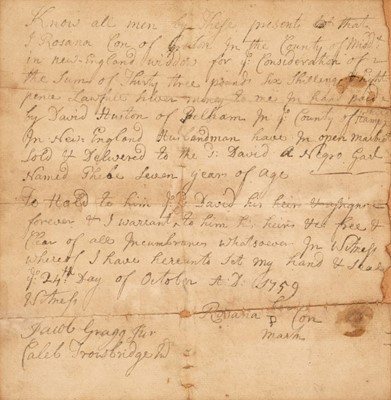 Know all men by These presents that
I Rosana Con of Groton In the County of Midd
in new-England widdow for ye Consideration of
the Sum of Thirty three pounds six Shillings Eight
pence Lawfull Silver money to me In hand paid
by David Huston of Pelham In ye County of Hamp
In New England Husbandman have In open market
Sold & Delivered to the sd David A Negro Garl
Named Phebe Seven year of age
To Hold to him ye sd David his heirs & assigns
forever & I warrant to him his heirs &c free &
Clear of all Incumbrances whatsoever In Witness
whereof I have hereunto Set my hand & Seal
ye 24th Day of October A:D: 1759
Witness
Rosana Con
mark
Jacob Gragg Jur
Caleb Trowbridge